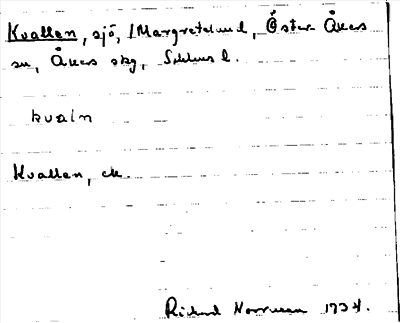 Kvallen, sjö, /Margretelund, Öster-Åkers
sn, Åkers skg, Sthlms l.
kvaln
Kvallen, ek.
Rickard Norrman 1934.